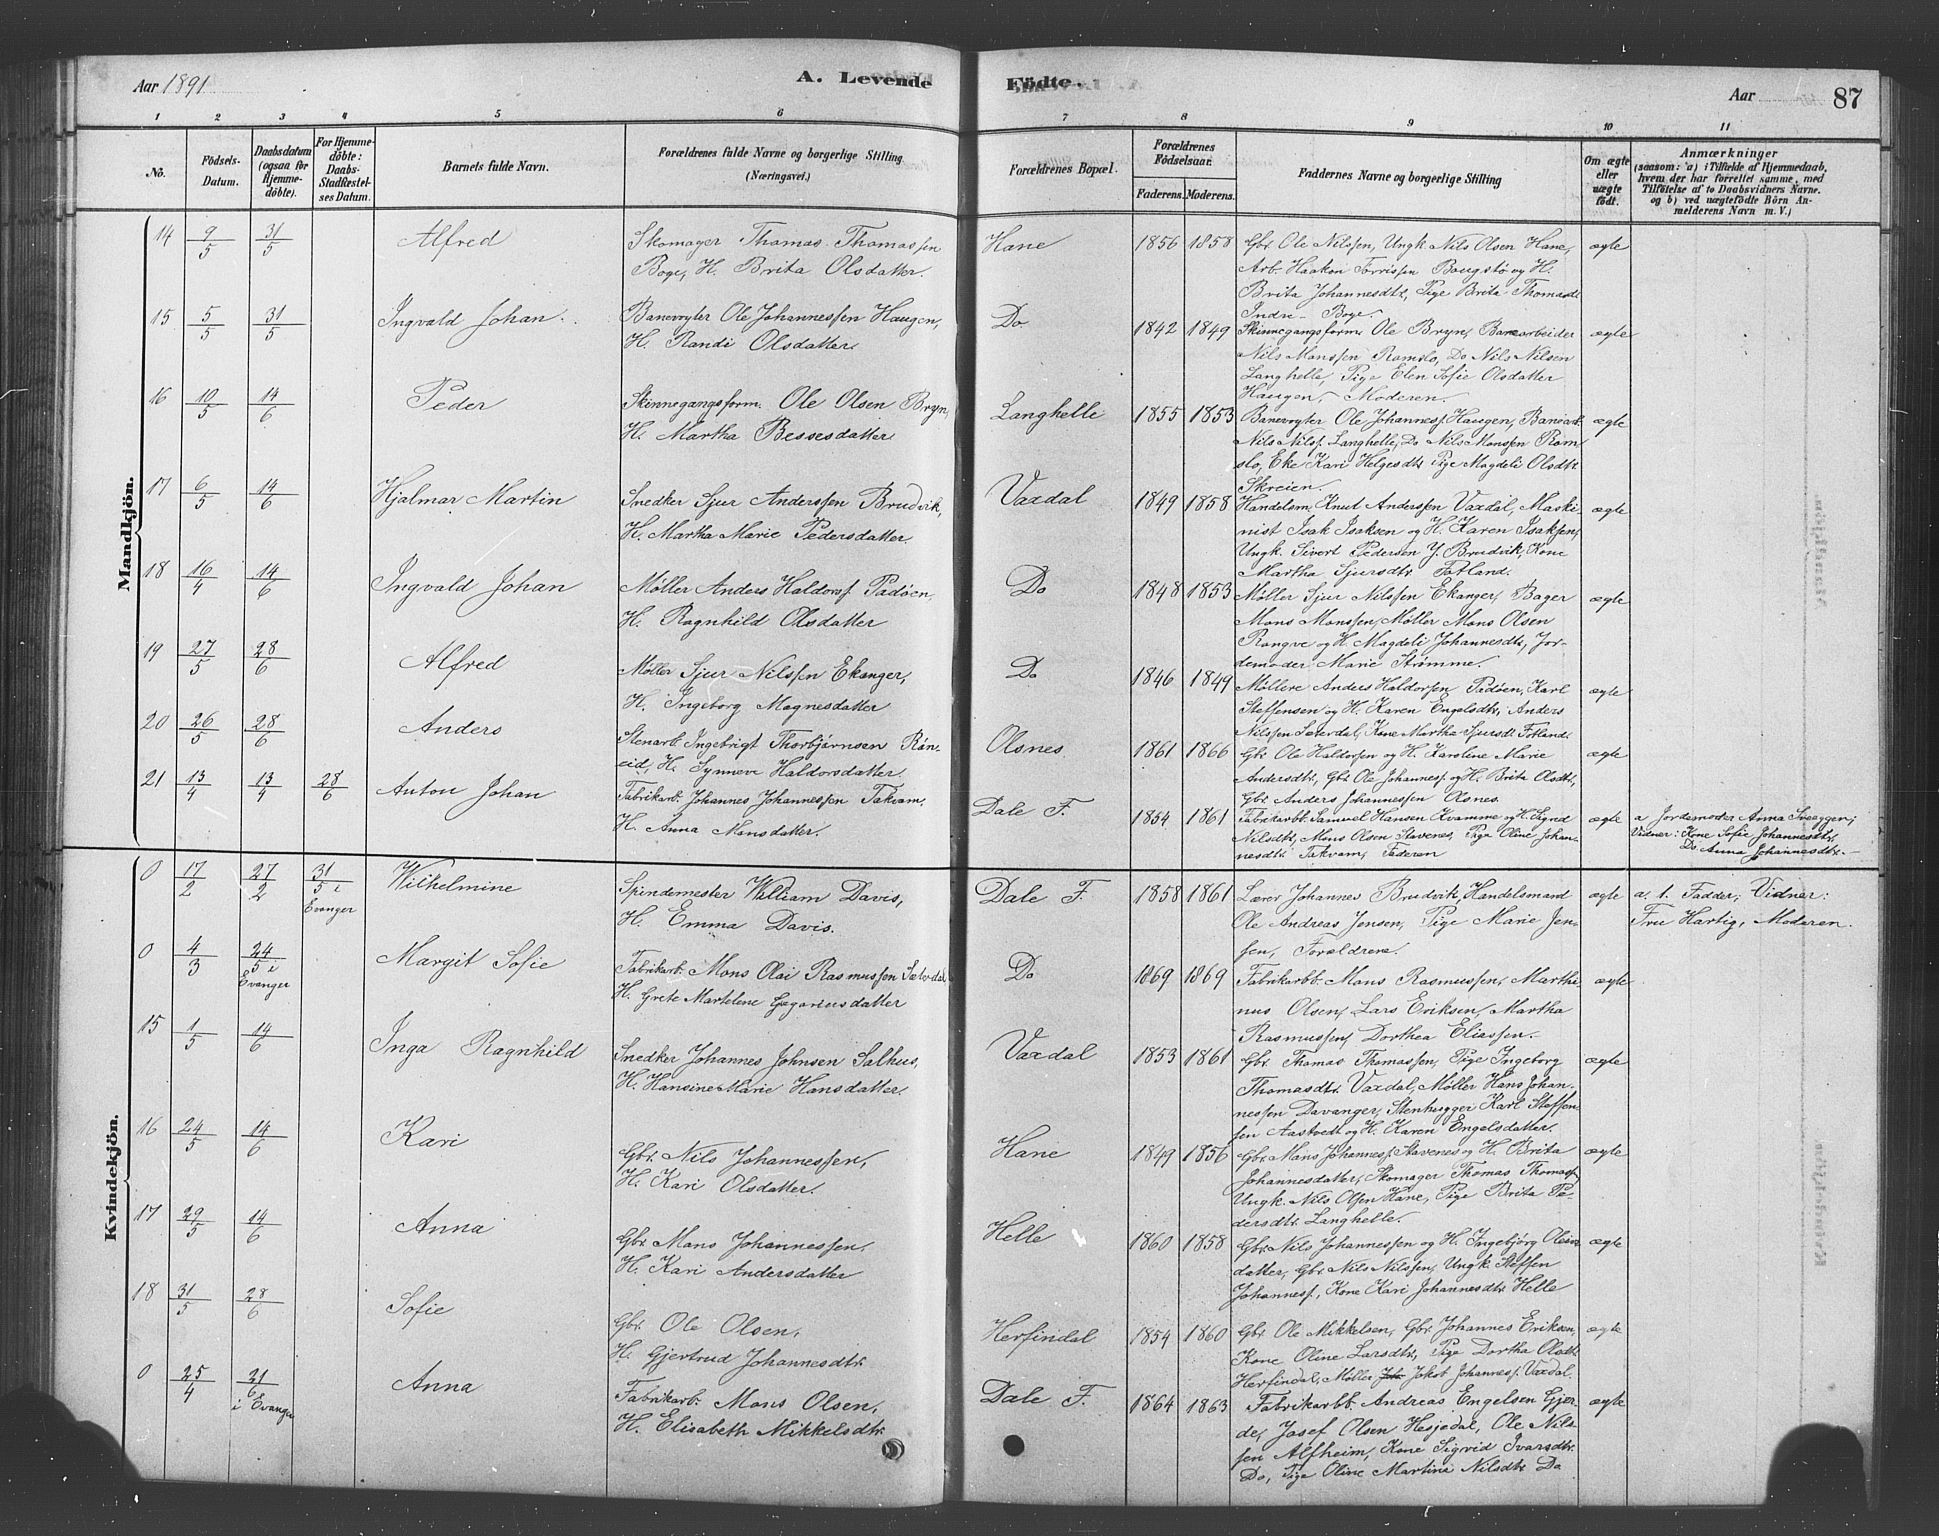 Aar 1891
A. Levende Födte.
Aar
87
1 2 3 4 5 6 7 8 9 10 11
No.
Födsels-Datum.
Daabsdatum (ogsaa for Hjemme-döbte).
For Hjemme-döbte: Daabs-Stadfæstel-ses Datum.
Barnets fulde Navn.
Forældrenes fulde Navne og borgerlige Stilling
(Næringsvei.)
Forældrenes Bopæl.
Forældrenes Födselsaar.
Faderens. Moderens.
Faddernes Navne og borgerlige Stilling
Om ægte eller uægte födt.
Anmærkninger
(saasom: a) i Tilfælde af Hjemmedaab,
hvem der har forrettet samme, med
Tilföielse af to Daabsvidners Navne.
og b) ved uægtefödte Börn An-
melderens Navn m. V.)
Mandkjön.
14 9/5 31/5 Alfred
Skomager Thomas Thomassen
Boge, H. Brita Olsdatter.
Hane 1856 1858
Gbr. Ole Nilssen, Ungk. Nils Olsen Hane,
Arb. Haakon Torrissen Bougstø og H.
Brita Johannesdtr, Pige Brita Thomasdtr
Indre Boge.
ægte
15 5/5 31/5 Ingvald Johan
Banevogter Ole Johannessen Haugen,
H. Randi Olsdatter.
Do 1842 1849
Skinnegangsform. Ole Bryn, Banearbeider
Nils Monssen Romslo, Do Nils Nilsen
Langhelle, Pige Elen Sofie Olsdatter
Haugen, Moderen.
ægte
16 10/5 14/6 Peder
Skinnegangsform. Ole Olsen Bryn,
H. Martha Bessesdatter
Langhelle 1855 1853
Banevogter Ole Johanness. Haugen, Banearb.
Nils Nilss. Langhelle, Do Nils Monssen Rom-
slo, Eke Kari Helgesdtr. Pige Magdeli Olsdtr.
Skreien.
ægte
17 6/5 14/6 Hjalmar Martin
Snedker Sjur Anderssen Brudvik,
H. Martha Marie Pedersdatter.
Vaxdal 1849 1858
Handelsm. Knut Anderssen Vaxdal, Maski-
nist Isak Isaksen og H. Karen Isaksen,
Ungk. Sivert Pedersen Y. Brudvik, Kone
Martha Sjursdtr. Fotland.
ægte
18 16/4 14/6 Ingvald Johan
Møller Anders Haldorss. Padøen,
H. Ragnhild Olsdatter
Do 1848 1853
Møller Sjur Nilssen Ekanger, Bager
Mons Monssen, Møller Mons Olsen
Rongve og H. Magdeli Johannesdtr., Jor-
demoder Marie Strømme.
ægte
19 27/5 28/6 Alfred
Møller Sjur Nilssen Ekanger,
H. Ingeborg Magnesdatter
Do 1846 1849
Møllere Anders Haldorsen Padøen, Karl
Steffensen og H. Karen Engelsdtr, Anders
Nilssen Sæterdal, Kone Martha Sjursdtr Fotland.
ægte
20 26/5 28/6 Anders
Stenarb. Ingebrigt Thorbjørnsen Røn-
eid, H. Synneve Haldorsdatter.
Olsnes 1861 1866
Gbr. Ole Haldorsen og H. Karoline Marie
Andersdtr., Gbr. Ole Johanness. og H. Brita Olsdtr.,
Gbr. Anders Johannessen Olsnes.
ægte
21 13/4 13/4 28/6 Anton Johan
Fabrikarb. Johannes Johannessen Takvam,
H. Anna Monsdatter.
Dale F. 1854 1861
Fabrikarbb. Samuel Hansen Kvamme og H. Signed
Nilsdtr, Mons Olsen Stavenes, Pige Oline Johan-
nesdtr. Takvam, Faderen
ægte
a Jordemoder Anna Sveggen;
Vidner: Kone Sofie Johannesdtr,
Do. Anna Johannesdtr.
Kvindekjön.
0 17/2 27/2 31/5 i Evanger Wilhelmine
Spindemester William Davis,
H. Emma Davis.
Dale F. 1858 1861
Lærer Johannes Brudvik, Handelsmand
Ole Andreas Jensen, Pige Marie Jen-
sen, Forældrene.
ægte
a. 1. Fadder; Vidner:
Fru Hartig, Moderen.
0 4/3 24/5 i Evanger Margit Sofie
Fabrikarb. Mons Olai Rasmussen Sæterdal
H. Grete Martelene Gegariusdatter
Do 1869 1869
Fabrikarbb. Mons Rasmussen, Marthi-
nus Olsen, Lars Eriksen, Martha
Rasmussen, Dorthea Eliassen.
ægte
15 1/5 14/6 Inga Ragnhild
Snedker Johannes Johnsen Salhus,
H. Hansine Marie Hansdatter.
Vaxdal 1853 1861
Gbr. Thomas Thomassen, Pige Ingeborg
Thomasdtr. Vaxdal, Møller Hans Johan-
nessen Davanger, Stenhugger Karl Steffen-
sen Aastvedt og H. Karen Engelsdatter.
ægte
16 24/5 14/6 Kari
Gbr. Nils Johannessen,
H. Kari Olsdatter.
Hane 1849 1856
Gbr. Mons Johanness. Stavenes og H. Brita
Johannesdatter, Skomager Thomas Thomass.
Ungk. Nils Olsen Hane, Pige Brita Pe-
dersdtr. Langhelle.
ægte
17 29/5 14/6 Anna
Gbr. Mons Johannessen.
H. Kari Andersdatter
Helle 1860 1858
Gbr. Nils Johannessen og H. Ingebjörg Olsdatter-
datter, Gbr. Nils Nilssen, Ungk Steffen
Johanness., Kone Kari Johannesdtr. Helle
ægte
18 31/5 28/6 Sofie
Gbr. Ole Olsen,
H. Gjertrud Johannesdtr.
Herfindal 1854 1860
Gbr. Ole Mikkelsen, Gbr. Johannes Eriksen,
Kone Oline Larsdtr, Pige Dortha Olsdtr.
Herfindal, Møller Jakob Johanness. Vaxdal.
ægte
0 25/4 21/6 i Evanger Anna
Fabrikarb. Mons Olsen,
H. Elisabeth Mikkelsdtr.
Dale F. 1864 1863
Fabrikarbb. Andreas Engelsen Gjer-
de, Josef Olsen Hesjedal, Ole Nils-
sen Alfheim, Kone Sigrid Ivarsdtr.
Do, Pige Oline Martine Nilsdtr. Do
ægte